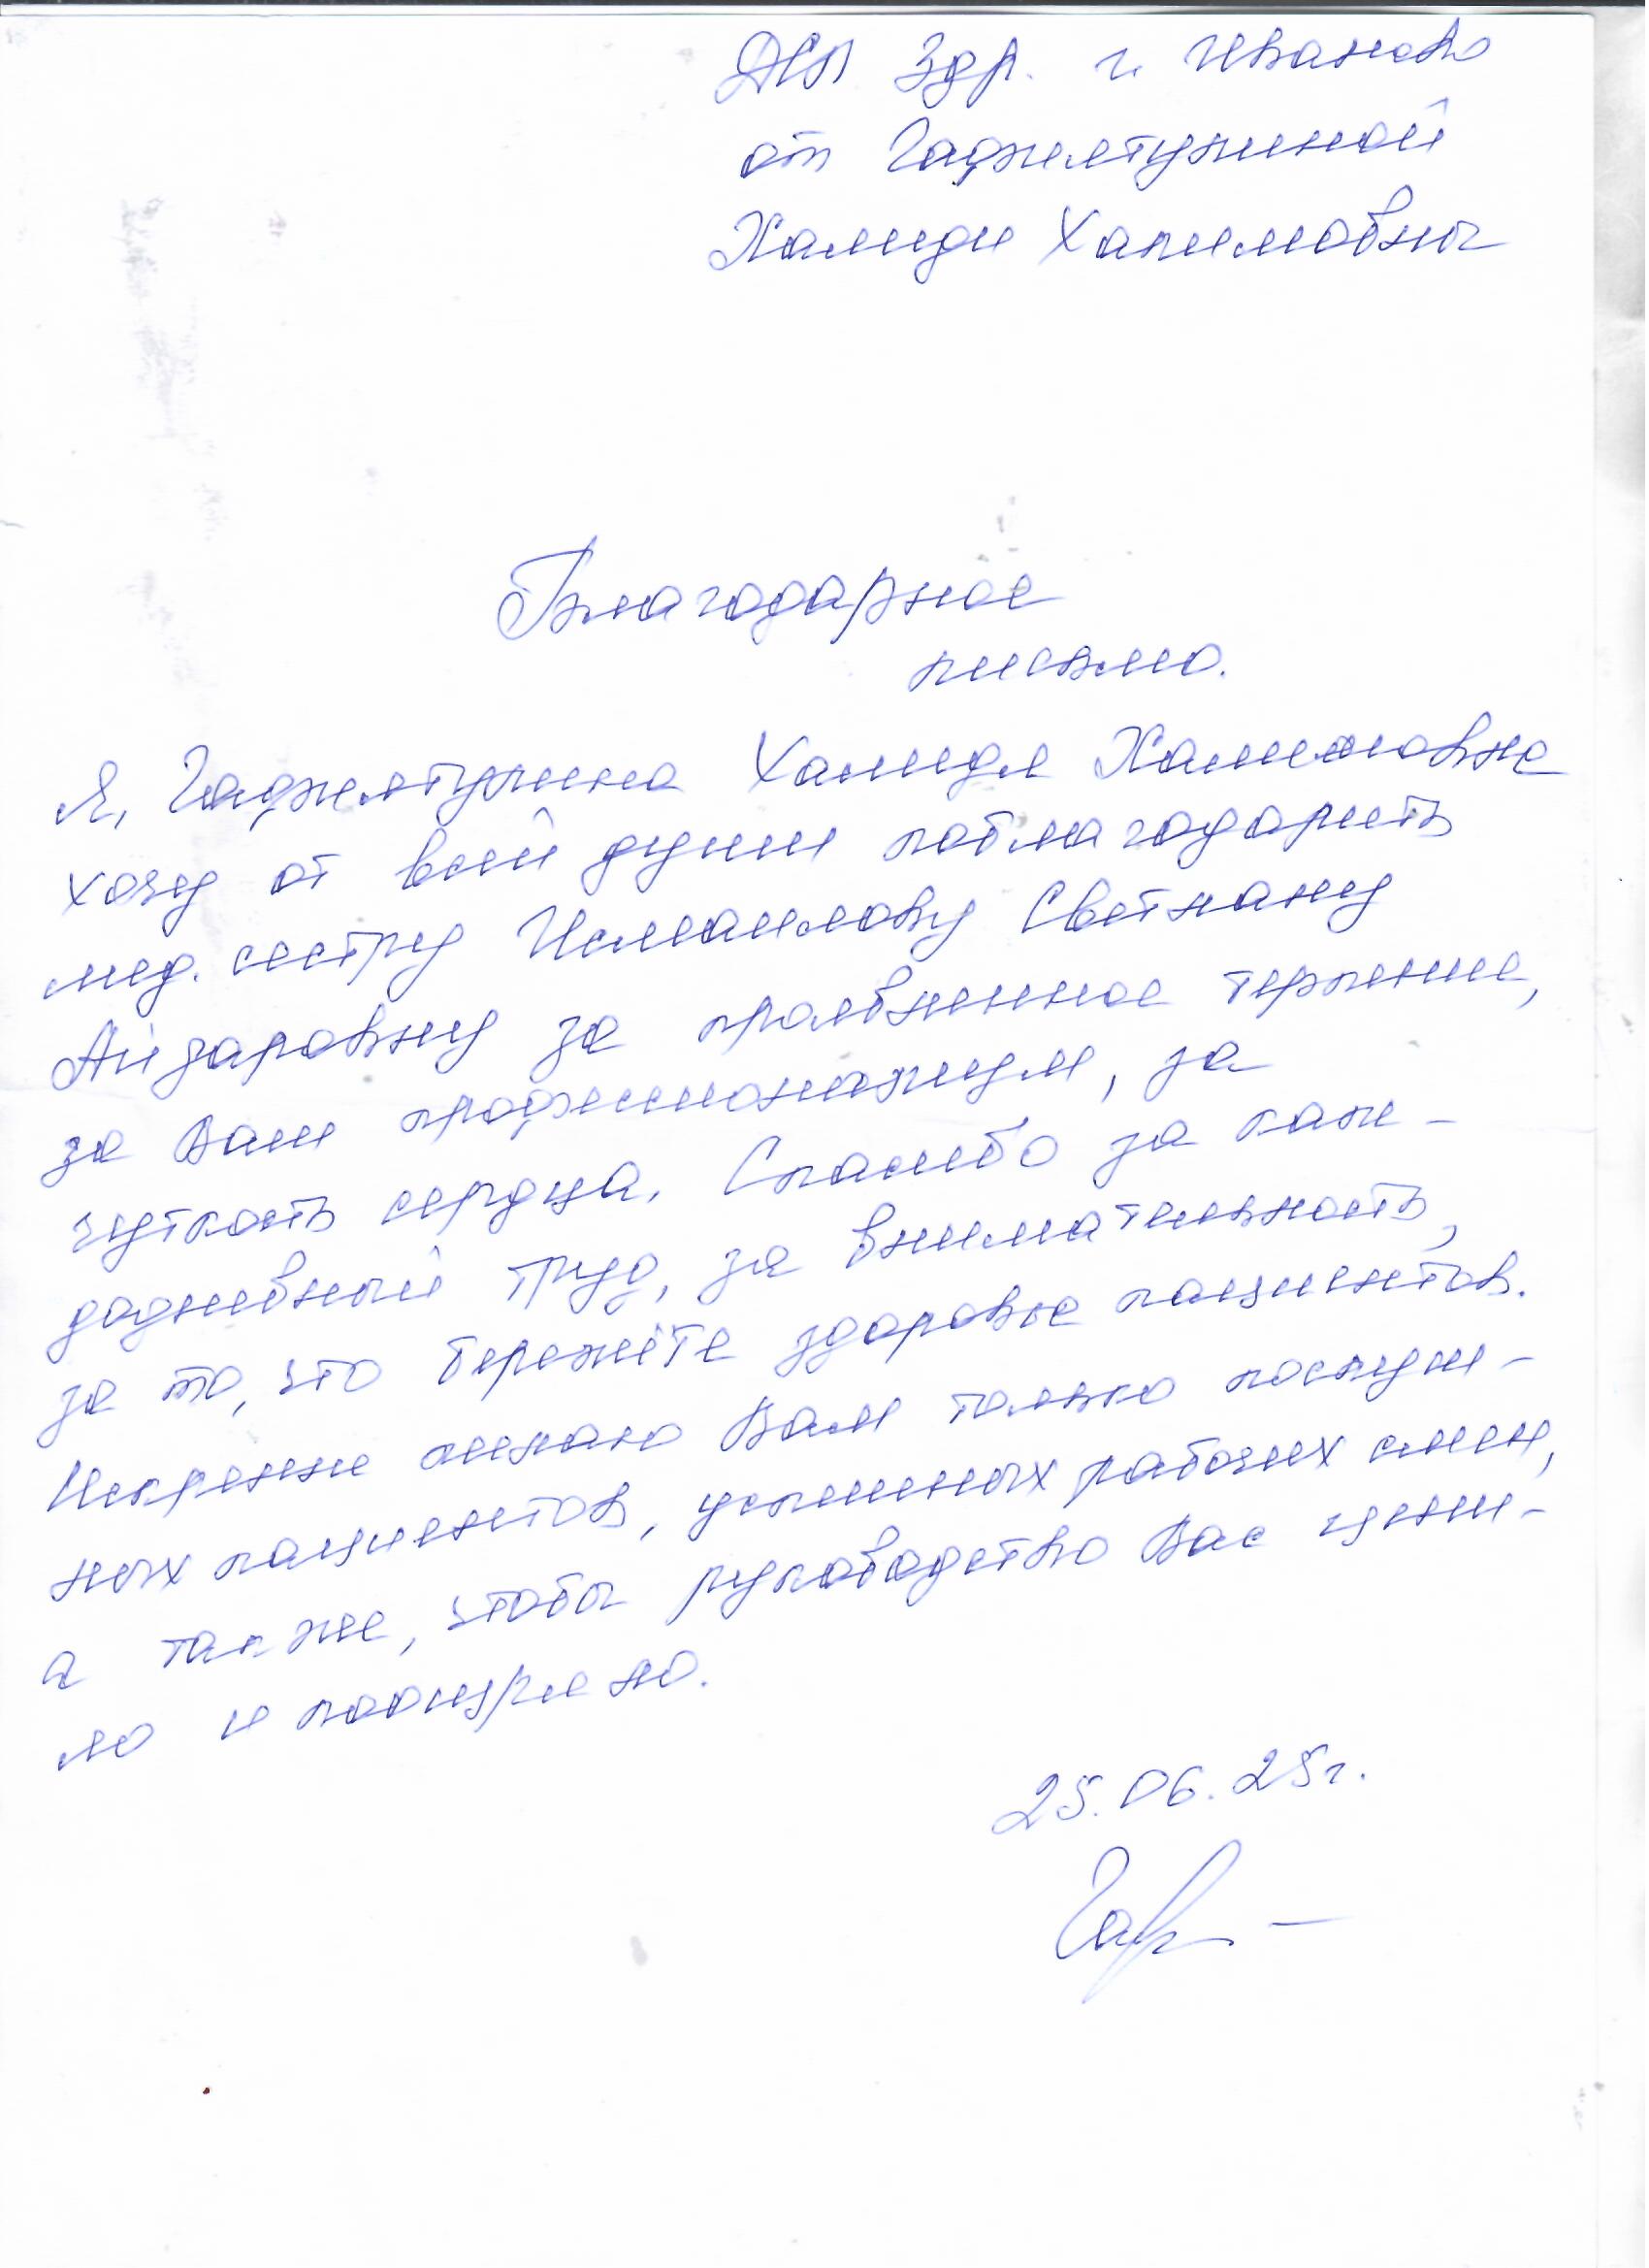 Здр. г. Иваново
от Гафиятулиной
Халиды Халимовны
Благодарное
письмо.
Я, Гафиятулина Халида Халимовна
хочу от всей души поблагодарить
мед. сестру Исмаилову Светлану
Айзаровну за проявленное терпение,
за Ваш професионализм, за
чуткость сердца. Спасибо за каж-
додневный труд, за внимательность,
за то, что бережёте здоровье пациентов.
Искренне желаю Вам только послуш-
ных пациентов, успешных рабочих смен,
а так же, чтобы руководство Вас цени-
ло и поощряло.
25.06.25г.